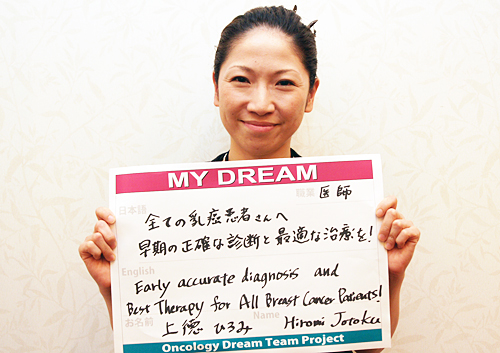 MY DREAM
職業 医師
日本語
全ての乳癌患者さんへ
早期の正確な診断と最適な治療を!
English
Early accurate diagnosis and
Best Therapy for All Breast Cancer Patients!
お名前 上徳 ひろみ Name Hiromi Jotoku
Oncology Dream Team Project